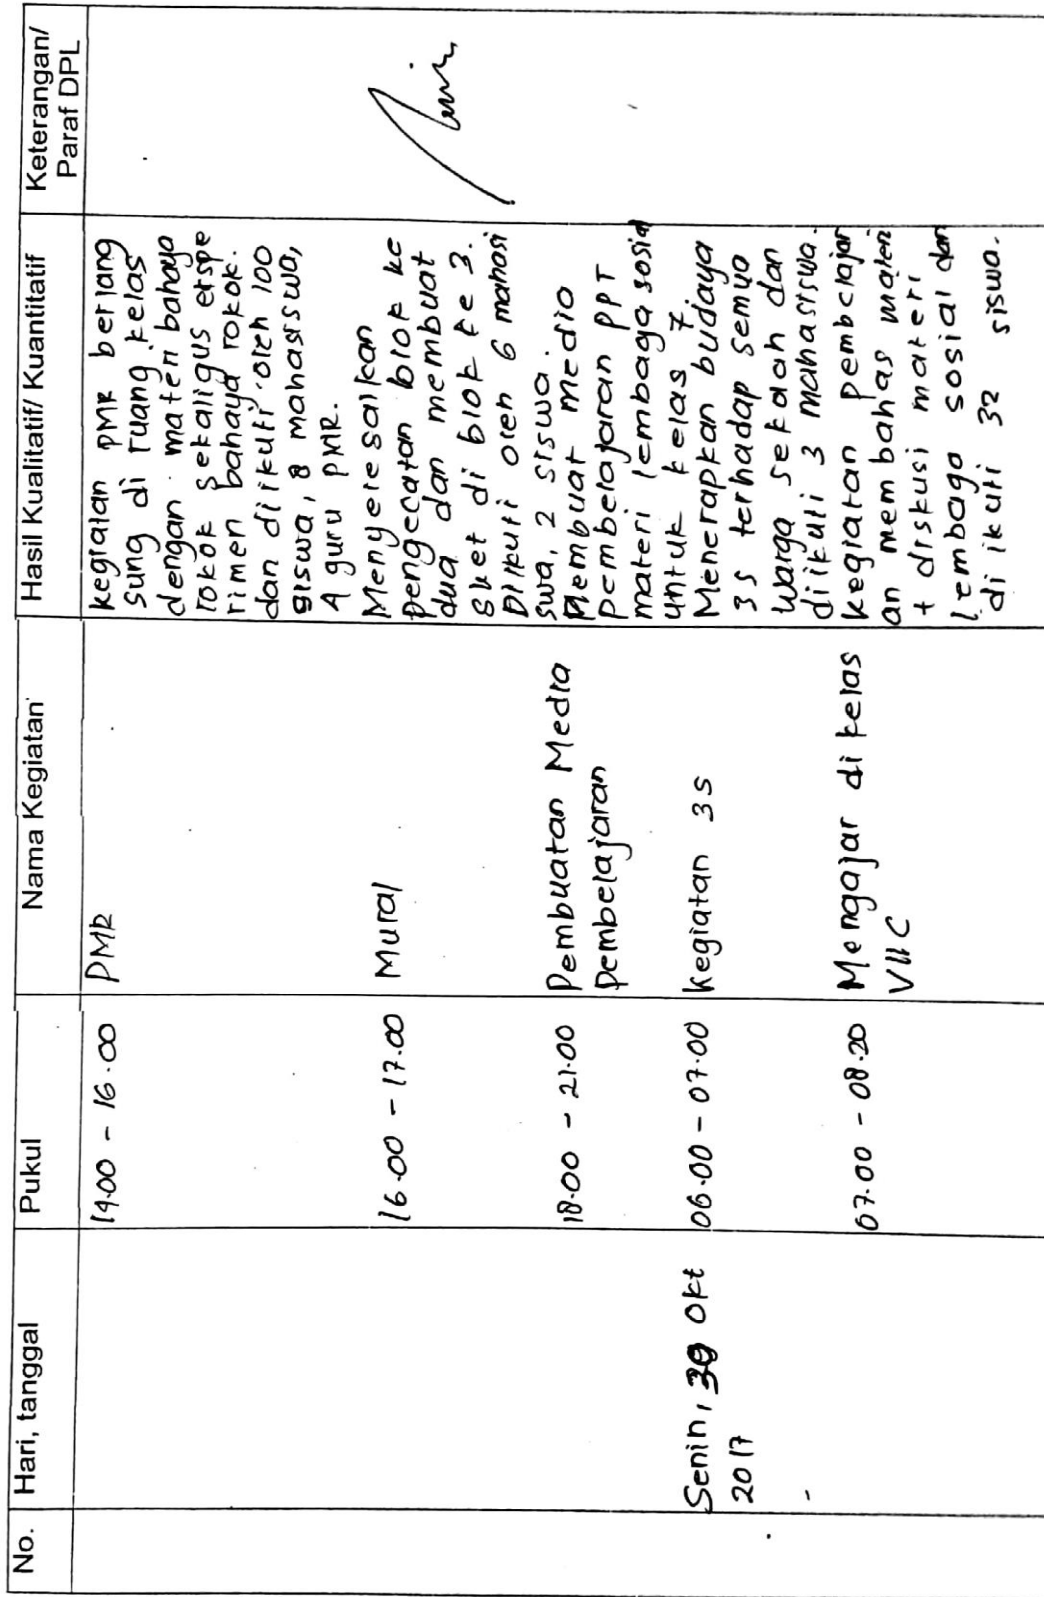 No.
Hari, tanggal
Pukul
Nama Kegiatan
Hasil Kualitatif/ Kuantitatif
Keterangan/
Paraf DPL
14.00 - 16.00
PMR
kegiatan PMR berlang
sung di ruang kelas
dengan materi bahaya
rokok sekaligus ekspe
rimen bahaya rokok.
dan diikuti oleh 100
siswa, 8 mahasiswa,
4 guru PMR.
16.00 - 17.00
Mural
Menyelesaikan
pengecatan blok ke
dua dan membuat
sket di blok ke 3.
Diikuti oleh 6 mahasi
swa, 2 siswa.
18.00 - 21.00
Pembuatan Media
Pembelajaran
Membuat media
pembelajaran PPT
materi lembaga sosial
untuk kelas 7
Senin, 30 Okt
2017
06.00 - 07.00
kegiatan 3s
Menerapkan budaya
3s terhadap semua
warga sekolah dan
diikuti 3 mahasiswa.
07.00 - 08.20
Mengajar di kelas
VIIC
kegiatan pembelajar
an membahas materi
+ diskusi materi
lembaga sosial dan
di ikuti 32 siswa.